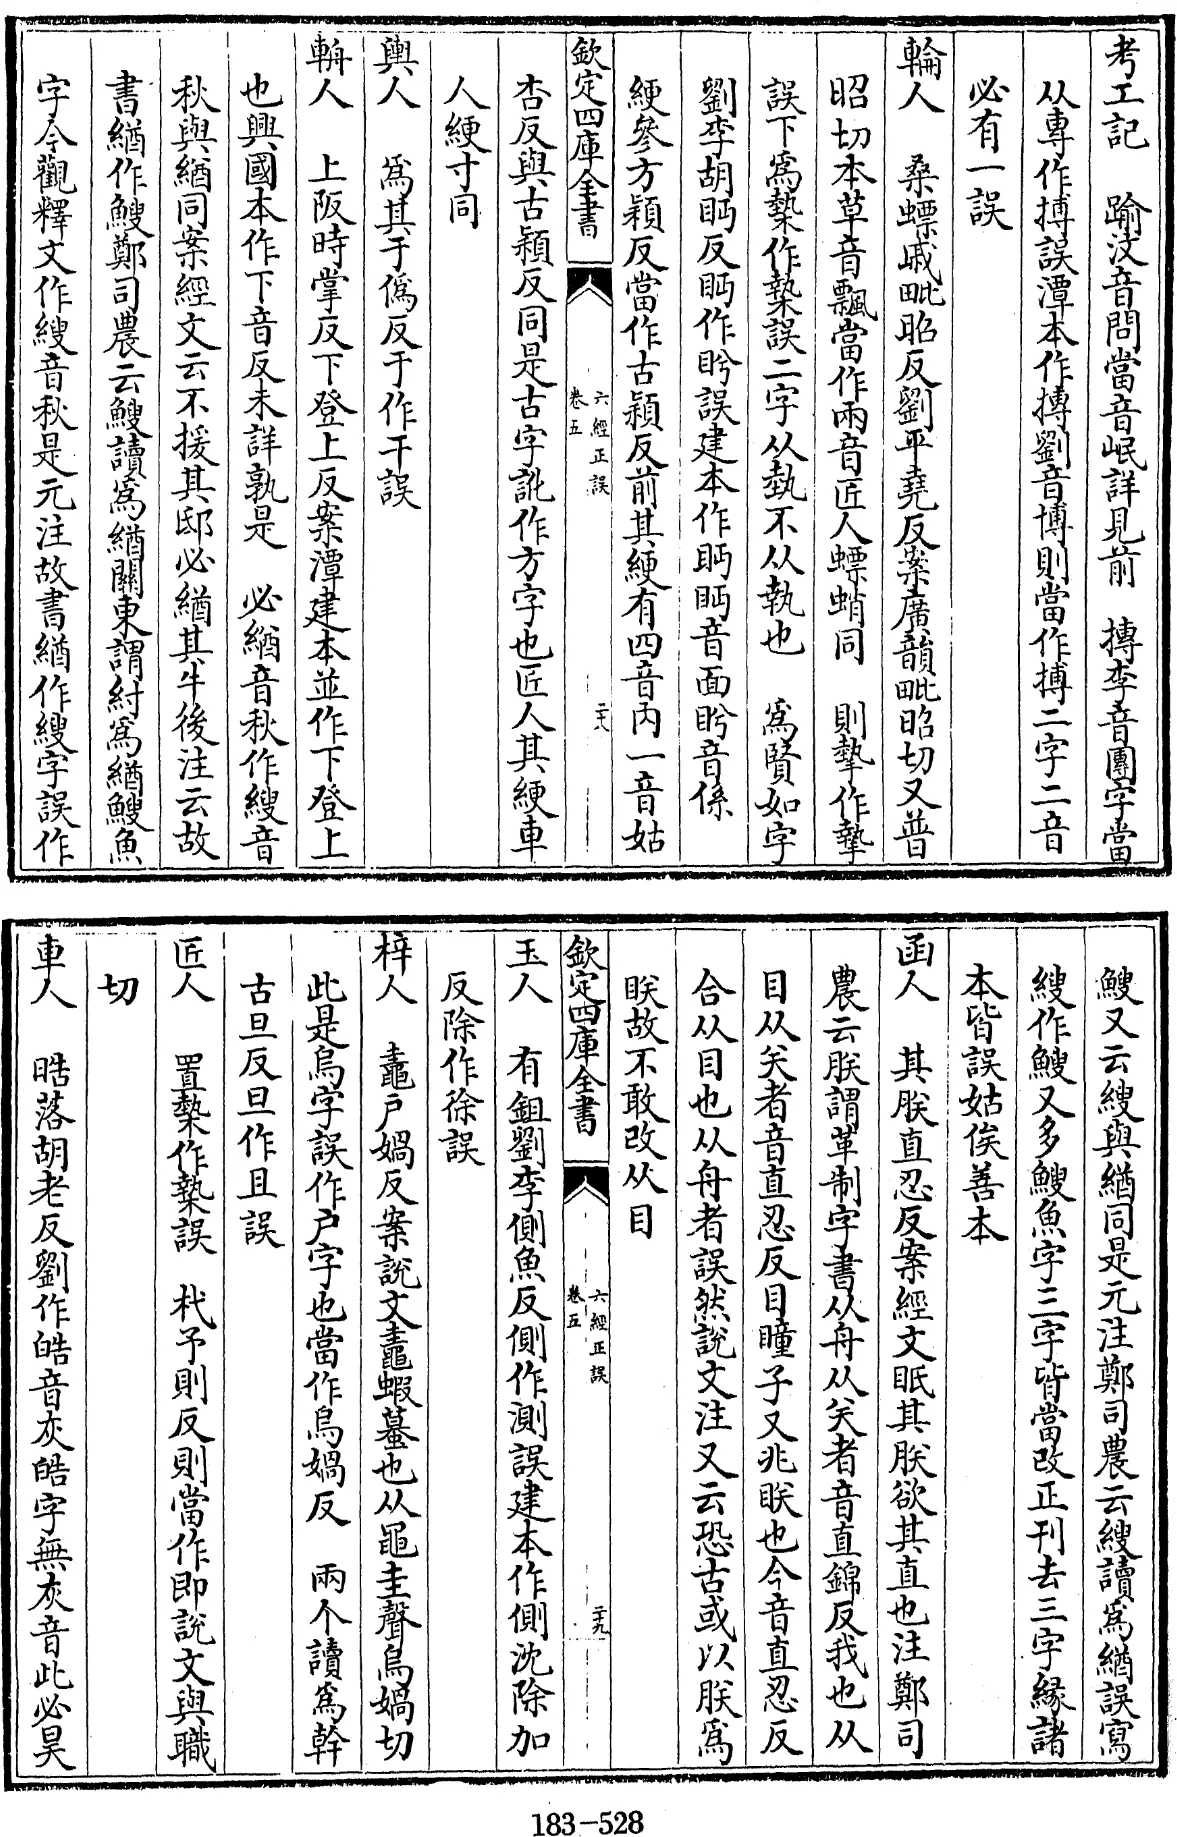 考工記　踰汶音問當音岷詳見前　摶李音團字當
从專作摶誤潭本作搏劉音博則當作搏二字二音
必有一誤
輪人　桑螵戚毗昭反劉平堯反案廣韻毗昭切又普
昭切本草音飄當作兩音匠人螵蛸同　則摯作摯
誤下為槷作槷誤二字从埶不从執也　為賢如字
劉李胡眄反眄作盻誤建本作眄眄音面盻音係
綆參方穎反當作古潁反前其綆有四音內一音姑
欽定四庫全書
六經正誤
卷五
二十八
杏反與古潁反同是古字訛作方字也匠人其綆車
人綆寸同
輿人　為其于偽反于作干誤
輈人　上阪時掌反下登上反案潭建本並作下登上
也興國本作下音反未詳孰是　必緧音秋作緮音
秋與緧同案經文云不援其邸必緧其牛後注云故
書緧作鰒鄭司農云鰒讀為緧關東謂紂為緧鰒魚
字今觀釋文作緮音秋是元注故書緧作緮字誤作
鰒又云緮與緧同是元注鄭司農云緮讀為緧誤寫
緮作鰒又多鰒魚字三字皆當改正刊去三字緣諸
本皆誤姑俟善本
函人　其朕直忍反案經文眂其朕欲其直也注鄭司
農云朕謂革制字書从舟从灷者音直錦反我也从
目从灷者音直忍反目瞳子又兆眹也今音直忍反
合从目也从舟者誤然說文注又云恐古或以朕為
眹故不敢改从目
欽定四庫全書
六經正誤
卷五
二十九
玉人　有鉏劉李側魚反側作測誤建本作側沈除加
反除作徐誤
梓人　鼃戶媧反案說文鼃蝦蟇也从黽圭聲烏媧切
此是烏字誤作戶字也當作烏媧反　兩个讀為幹
古旦反旦作且誤
匠人　置槷作槷誤　杙予則反則當作即說文與職
切
車人　晧落胡老反劉作皓音灰皓字無灰音此必昊
183-528